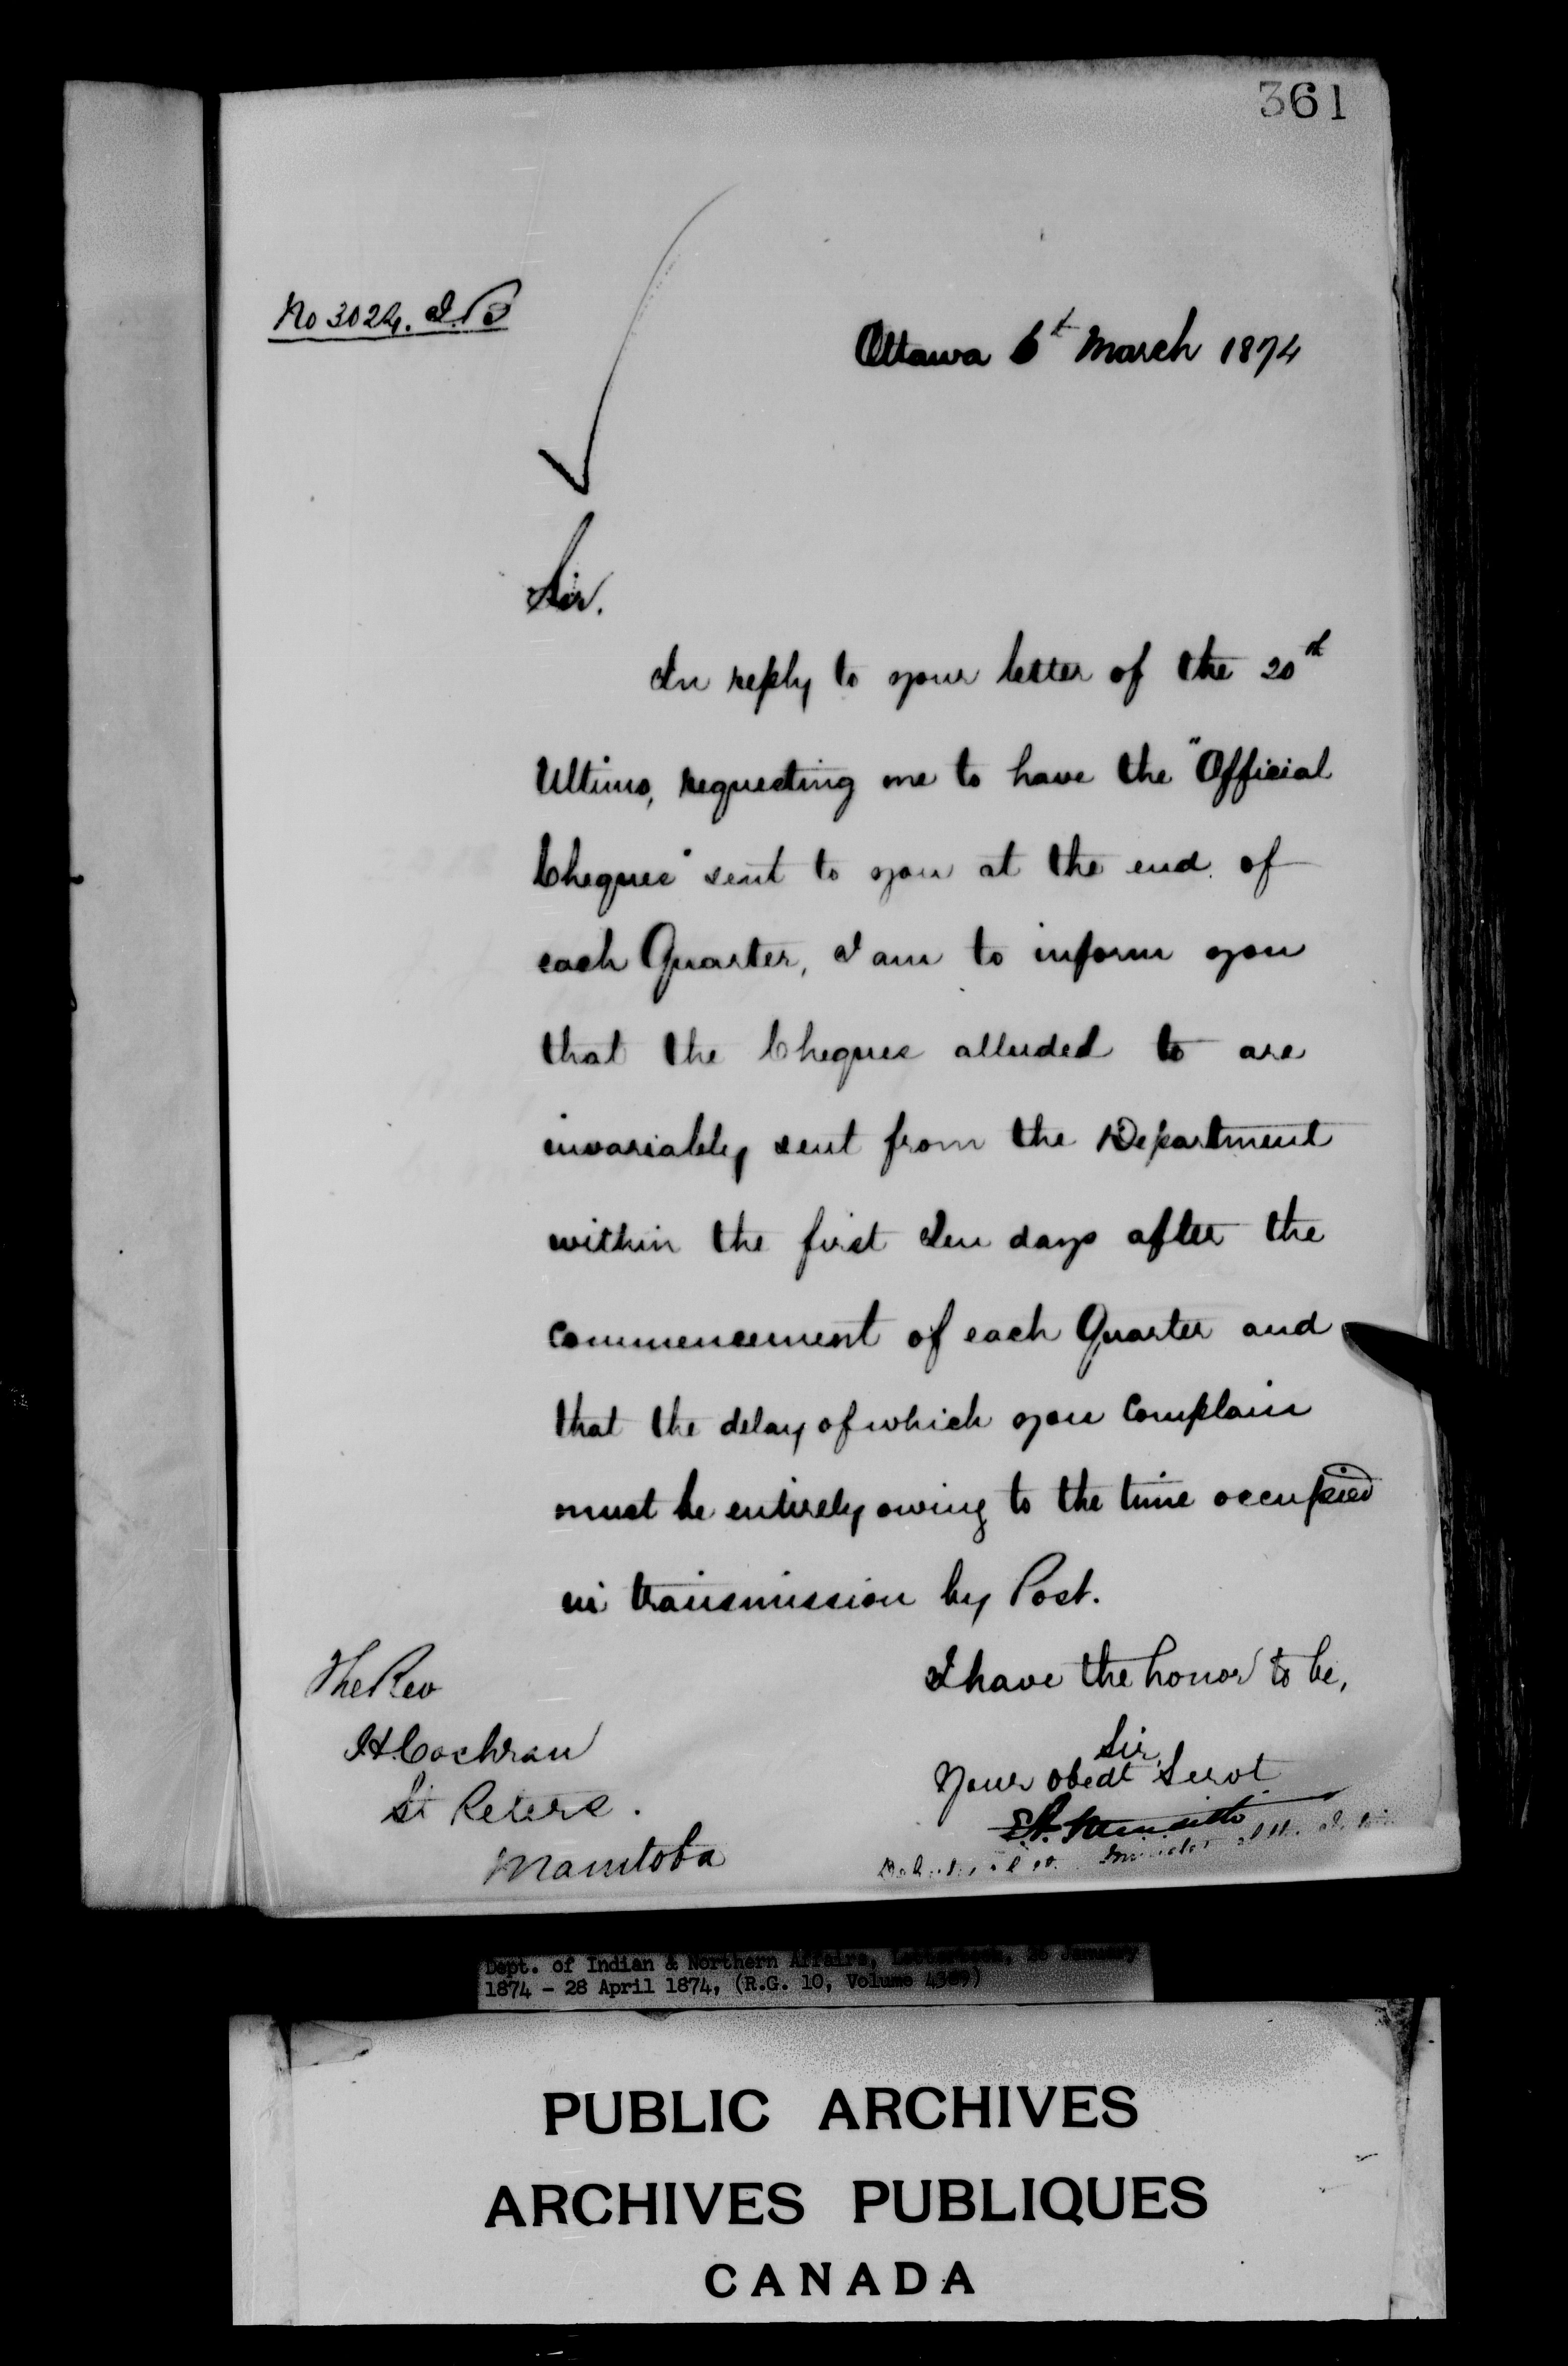 361
No 3024. I.B
Ottawa 6t March 1874
Sir.
In reply to your letter of the 20th
Ultimo, requesting me to have the "Official
Cheques" sent to you at the end of
each Quarter, I am to inform you
that the Cheques alluded to are
invariably sent from the Department
within the first Ten days after the
commencement of each Quarter and
that the delay of which you Complain
must be entirely owing to the time occupied
in transmission by Post.
I have the honor to be,
Sir,
Your obedt Servt
The Rev
H Cochran
St Peters.
Manitoba
Dept. of Indian & Northern Affairs, Letterbook, January
1874 - 28 April 1874, (R.G. 10, Volume
PUBLIC ARCHIVES
ARCHIVES PUBLIQUES
CANADA